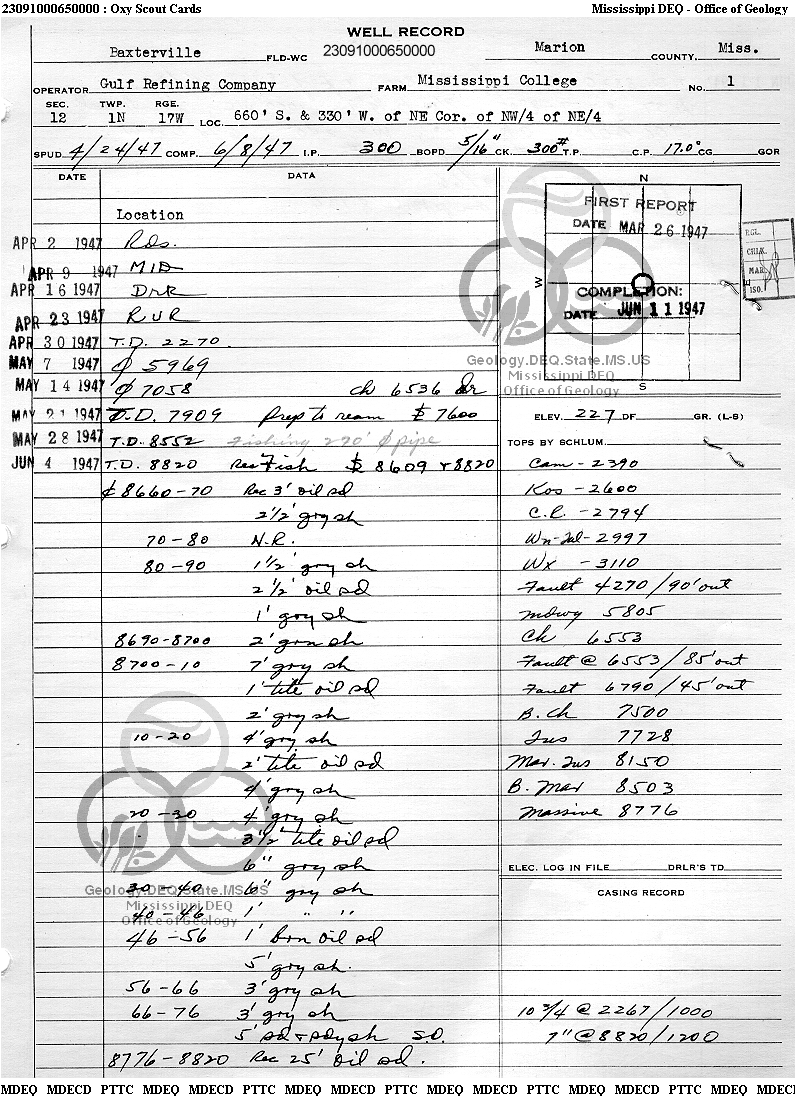 23091000650000 : Oxy Scout Cards Mississippi DEQ - Office of Geology
WELL RECORD
Baxterville FLD-WC 23091000650000 Marion COUNTY, Miss.
OPERATOR Gulf Refining Company FARM Mississippi College NO. 1
SEC. TWP. RGE.
12 1N 17W LOC. 660' S. & 330' W. of NE Cor. of NW/4 of NE/4
SPUD 4/24/47 COMP. 6/8/47 I.P. 300 BOPD 5/16" CK. 300# T.P. C.P. 17.0° CG GOR
DATE DATA
N
FIRST REPORT
DATE MAR 26 1947
W
COMPLETION:
DATE JUN 11 1947
S
RGL.
CHLK.
MAR.
ISO.
Location
APR 2 1947 Rds.
APR 9 1947 MID
APR 16 1947 DRR
APR 23 1947 RUR
APR 30 1947 T.D. 2270
MAY 7 1947 5969
MAY 14 1947 7058 Ch 6536
MAY 21 1947 T.D. 7909 prep to ream 7600
MAY 28 1947 T.D. 8552 Fishing 270' pipe
JUN 4 1947 T.D. 8820 Rec Fish 8609 + 8820
8660-70 Rec 3' oil sd
2 1/2' gry sh
70-80 N.R.
80-90 1 1/2' gry sh
2 1/2' oil sd
1' gry sh
8690-8700 2' grn sh
8700-10 7' gry sh
1' tite oil sd
2' gry sh
10-20 4' gry sh
2' tite oil sd
4' gry sh
20-30 4' gry sh
3 1/2' tite oil sd
6" gry sh
30-40 6" gry sh
40-46 1' " "
46-56 1' brn oil sd
5' gry sh.
56-66 3' gry sh
66-76 3' gry sh
5' sd & sdy sh SO.
8776-8820 Rec 25' oil sd.
Geology.DEQ.State.MS.US
Mississippi DEQ
Office of Geology
Geology.DEQ.State.MS.US
Mississippi DEQ
Office of Geology
ELEV. 227 DF GR. (L-S)
TOPS BY SCHLUM.
Cam - 2390
Kos - 2600
C.R. - 2794
Wn-Tal - 2997
Wx - 3110
Fault 4270/90' out
mdwy 5805
Ch 6553
Fault @ 6553/85' out
Fault 6790/45' out
B. Ch 7500
Tus 7728
Mar. Tus 8150
B. Mar 8503
Massive 8776
ELEC. LOG IN FILE DRLR'S TD
CASING RECORD
10 3/4 @ 2267/1000
7" @ 8820/1200
MDEQ MDECD PTTC MDEQ MDECD PTTC MDEQ MDECD PTTC MDEQ MDECD PTTC MDEQ MDECD PTTC MDEQ MDECD